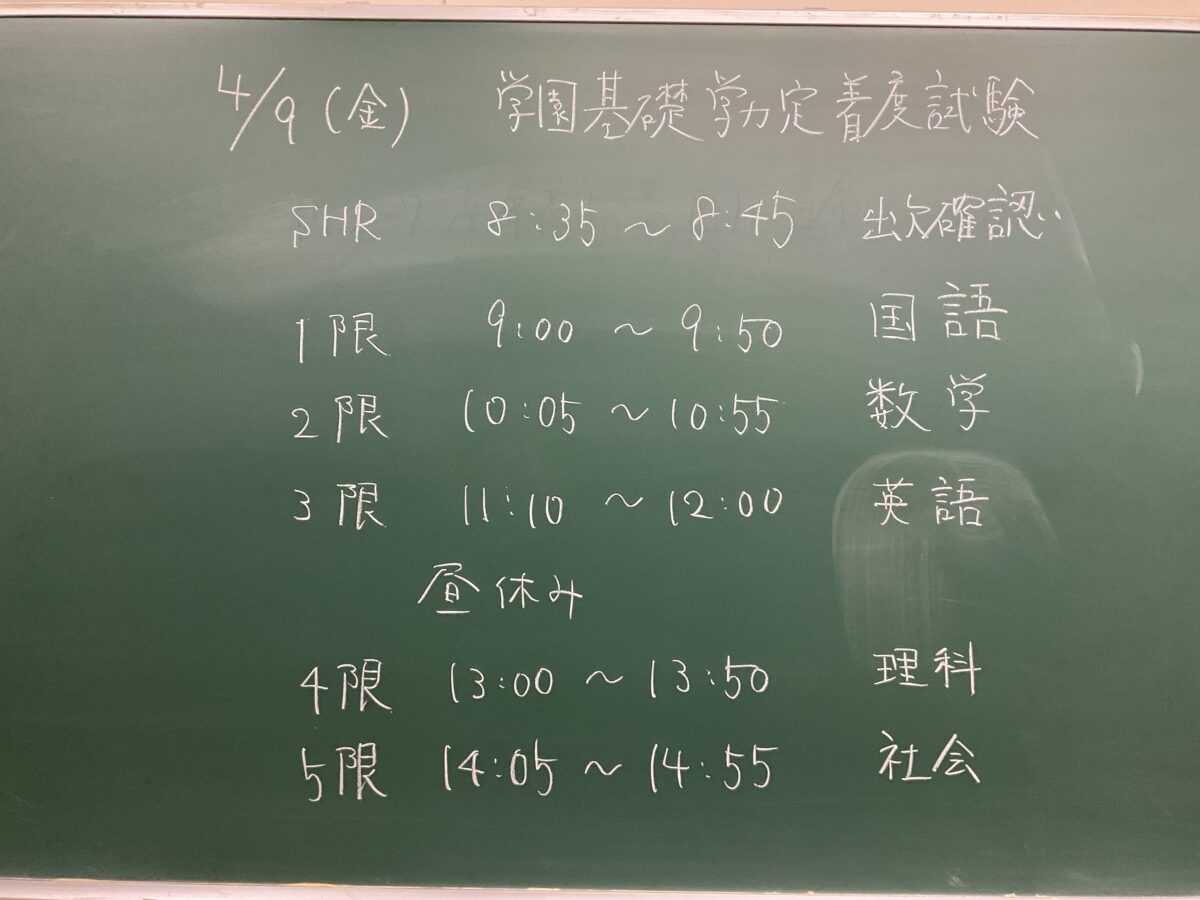 4/9(金) 学園基礎学力定着度試験
SHR 8:35～8:45 出欠確認
1限 9:00～9:50 国語
2限 10:05～10:55 数学
3限 11:10～12:00 英語
昼休み
4限 13:00～13:50 理科
5限 14:05～14:55 社会